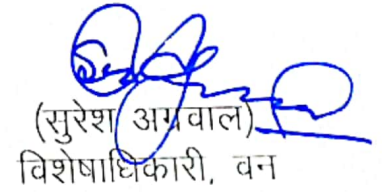 (सुरेश अग्रवाल)
विशेषाधिकारी, वन